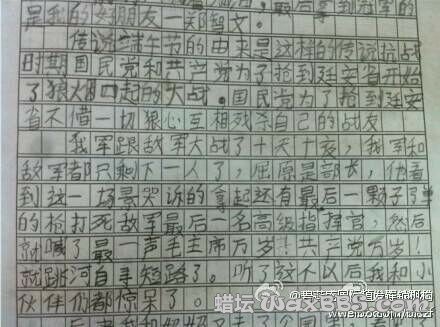 是我的好朋友一郑智文。
传说端午节的由来是这样的传说抗战
时期国民党和共产党为了抢到延安省开始
了狼烟四起的大战。国民党为了抢到延安
省不惜一切狠心互相残杀自己的战友
我军跟敌军大战了十天十夜,我军和
敌军都只剩下一人了,屈原是部长,他看
到这一场景哭诉的拿起还有最后一颗子弹
的枪打死敌军最后一名高级指挥官,然后
就喊了最一声毛主席万岁!共产党万岁!
就跳河自寻短路了。听了这个以后我和小
伙伴们都惊呆了。
蜡坛 MaxBBS.com